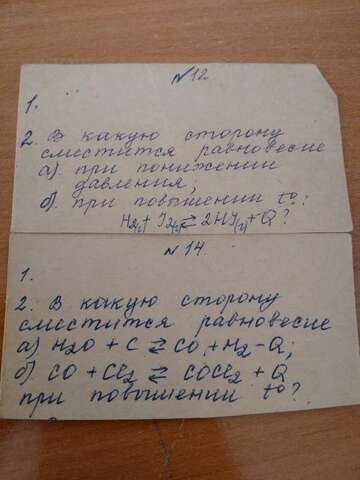 №12.
1.
2. В какую сторону
сместится равновесие
а). при понижении
давления;
б). при повышении t°:
H₂(г) + J₂(г) ⇄ 2HJ(г) + Q?
№14.
1.
2. В какую сторону
сместится равновесие
а) H₂O + C ⇄ CO + H₂ - Q;
б). CO + Cl₂ ⇄ COCl₂ + Q
при повышении t°?